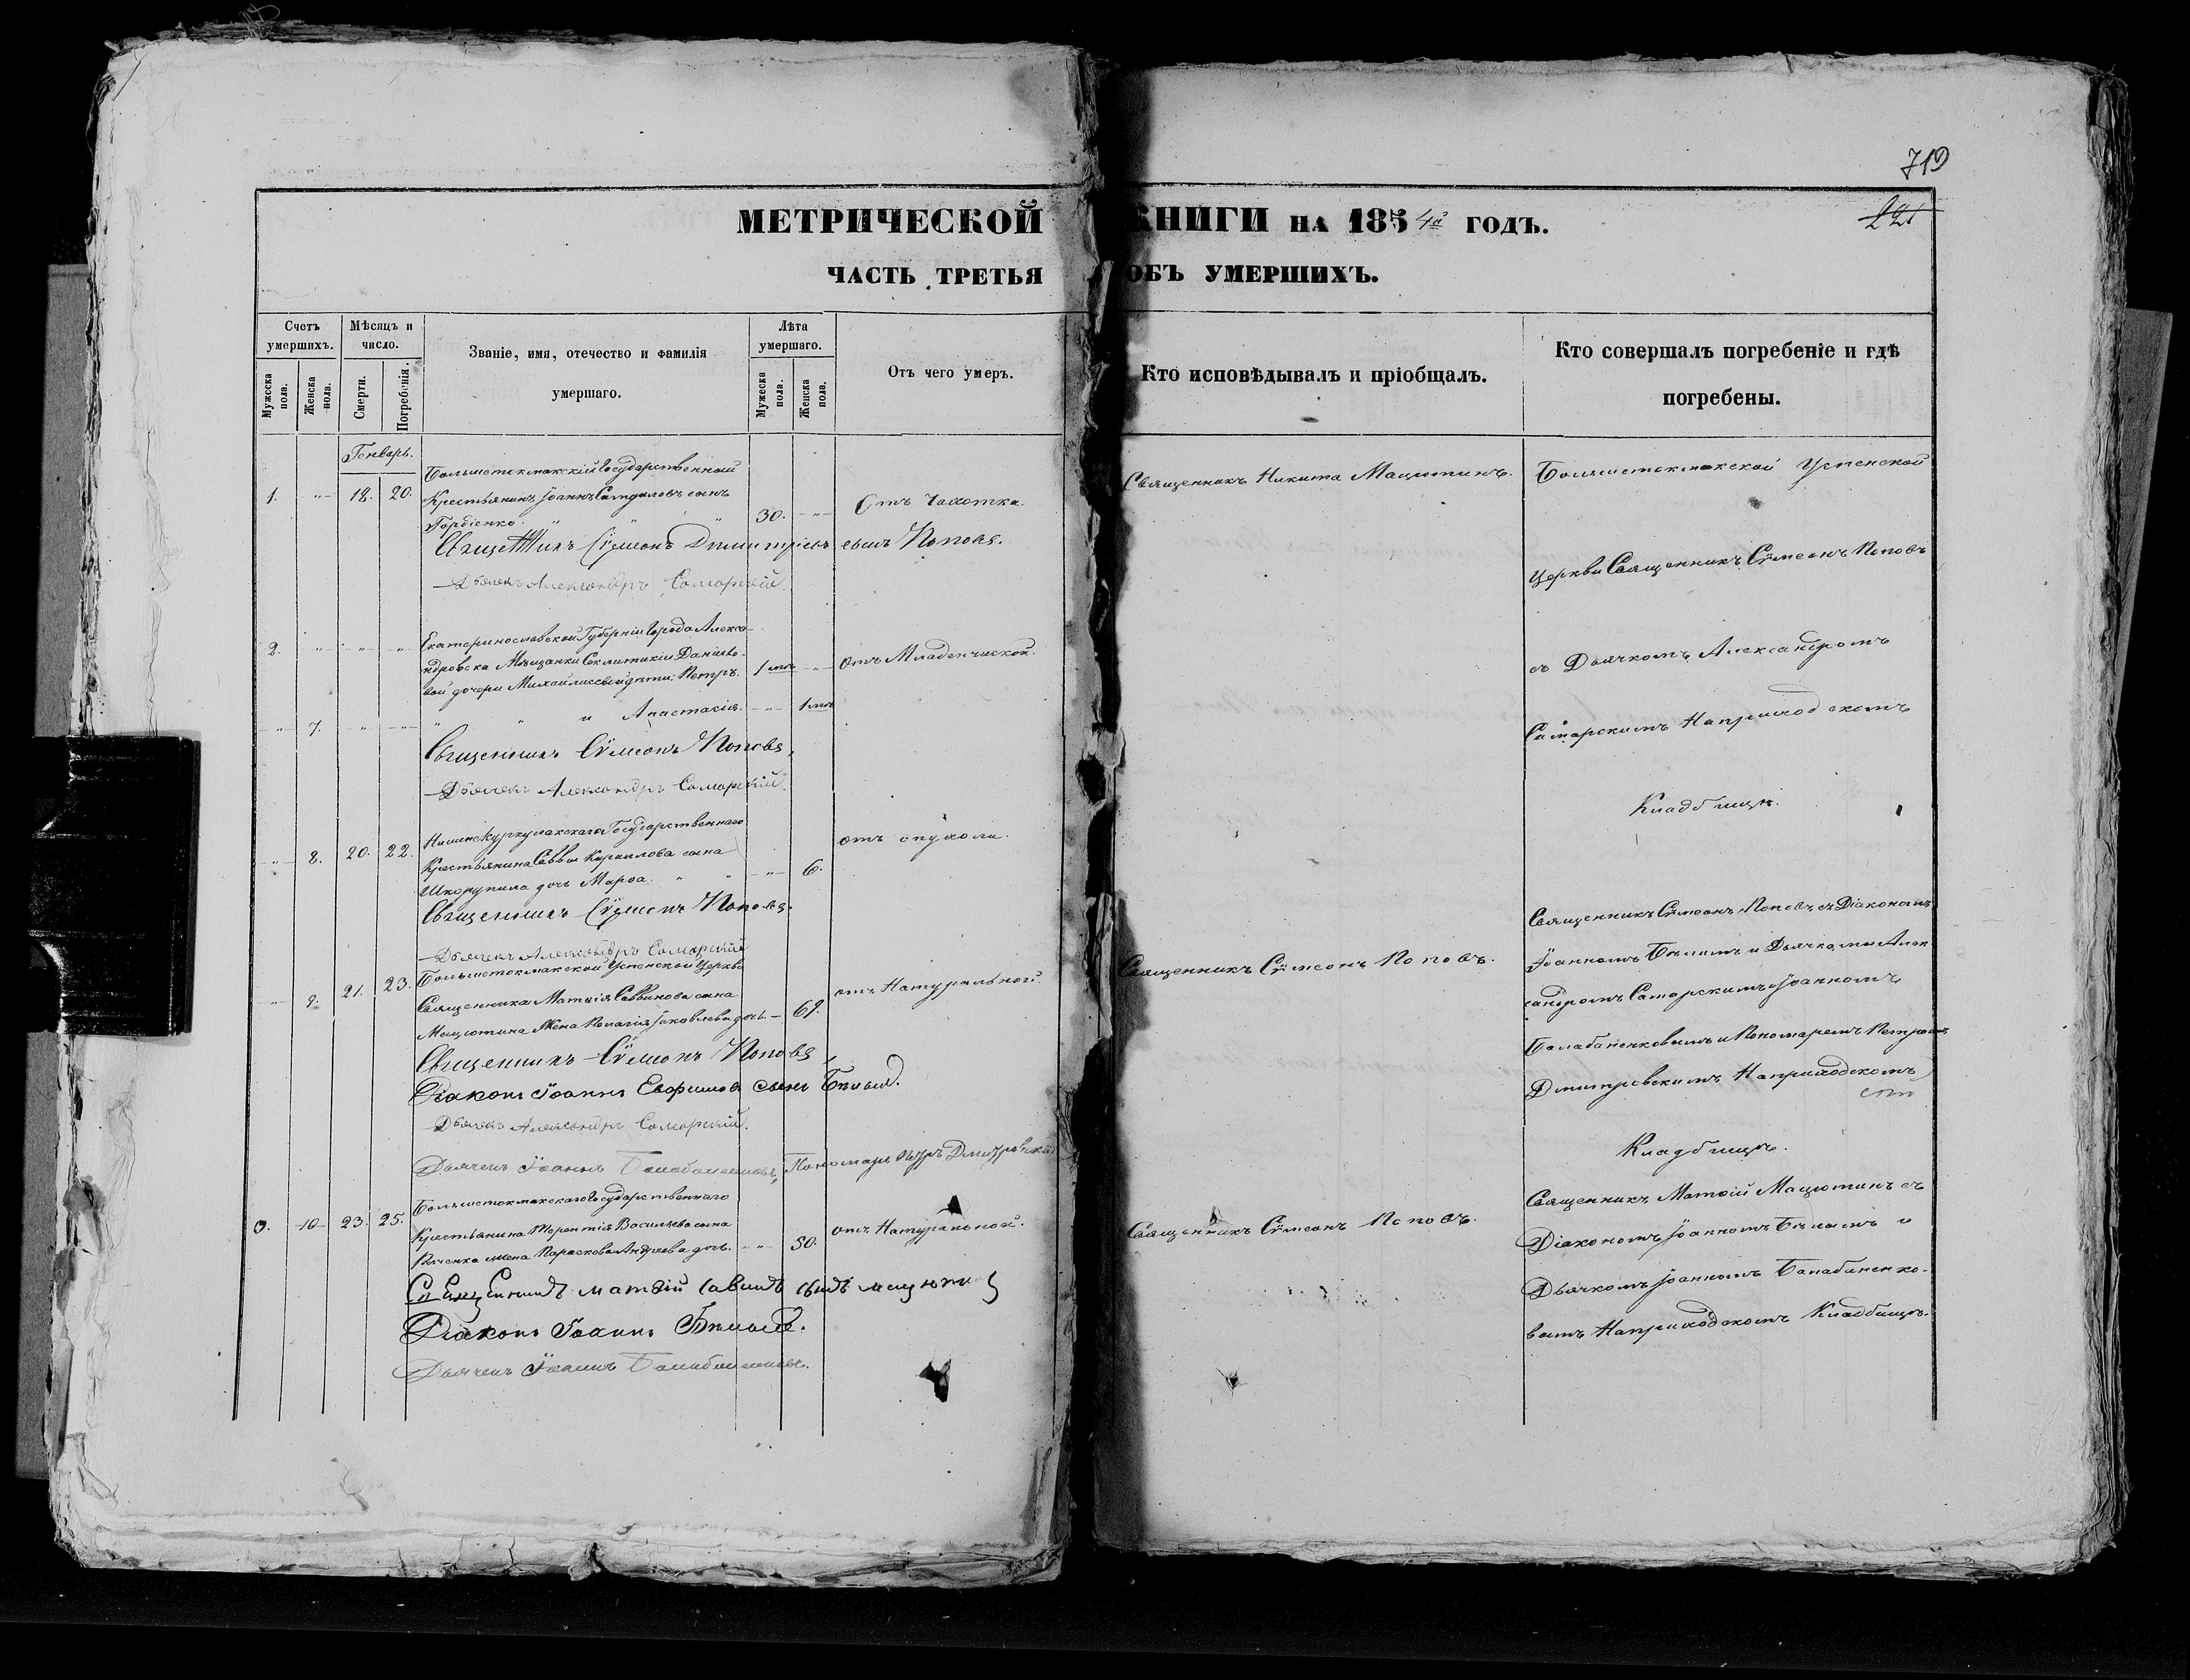 719
221
МЕТРИЧЕСКОЙ КНИГИ НА 1854й ГОДЪ.
ЧАСТЬ ТРЕТЬЯ ОБЪ УМЕРШИХЪ.
Счетъ умершихъ.
Мужеска пола.
Женска пола.
Мѣсяцъ и число.
Смерти.
Погребенія.
Званіе, имя, отечество и фамилія умершаго.
Лѣта умершаго.
Мужеска пола.
Женска пола.
Отъ чего умеръ.
Кто исповѣдывалъ и пріобщалъ.
Кто совершалъ погребеніе и гдѣ погребены.
Генварь.
Большетокмакскій Государственный
1. " 18. 20. Крестьянинъ Іоаннъ сынъ
Гордіенко. " " " 30. " Отъ Чахотки.
Священникъ Сѵмеонъ Димитріевъ сынъ Поповъ.
Дьячекъ Александръ Самарскій.
Екатеринославской Губерніи Города Алекса-
2. " " " ндровска Мѣщанки Даніило-
вой дочери дѣти: Петръ. 1 " Отъ Младенческой.
" 7. " " " " и Анастасія. " 1
Священникъ Сѵмеонъ Поповъ,
Дьячекъ Александръ Самарскій.
Государственнаго
" 8. 20. 22. Крестьянина Саввы Кириллова сына
Шкорупила дочь Марѳа. " " " 6. отъ опухоли.
Священникъ Сѵмеонъ Поповъ.
Дьячекъ Александръ Самарскій
Большетокмакской Успенской Церкви
" 9. 21. 23. Священника Матѳія Саввинова сына
Мацютина Жена Пелагія Іаковлева дочь. 61. отъ Натуральной.
Священникъ Сѵмеонъ Поповъ,
Діаконъ Іоаннъ Евѳимовъ сынъ Бѣлый.
Дьячекъ Александръ Самарскій.
Дьячекъ Іоаннъ Балабаненковъ, Пономарь Петръ Дмитровскій
Большетокмакскаго Государственнаго
0. 10 23. 25. Крестьянина Терентія Васильева сына
жена Параскева Андреева дочь. " 50. отъ Натуральной.
Священникъ Матѳій Савинъ сынъ Мацютинъ
Діаконъ Іоаннъ Бѣлый.
Дьячекъ Іоаннъ Балабаненковъ.
Священникъ Никита Мацютинъ.
Священникъ Сѵмеонъ Поповъ.
Священникъ Сѵмеонъ Поповъ.
Большетокмакской Успенской
Церкви Священникъ Сѵмеонъ Поповъ
съ Дьячкомъ Александромъ
Самарскимъ На приходскомъ
Кладбищѣ.
Священникъ Сѵмеонъ Поповъ съ Діакономъ
Іоанномъ Бѣлымъ и Дьячками Алек
сандромъ Самарскимъ Іоанномъ
Балабаненковымъ и Пономаремъ Петромъ
Дмитровскимъ На приходскомъ
Кладбищѣ.
Священникъ Матѳій Мацютинъ съ
Діакономъ Іоанномъ Бѣлымъ и
Дьячкомъ Іоанномъ Балабаненко-
вымъ На приходскомъ Кладбищѣ.